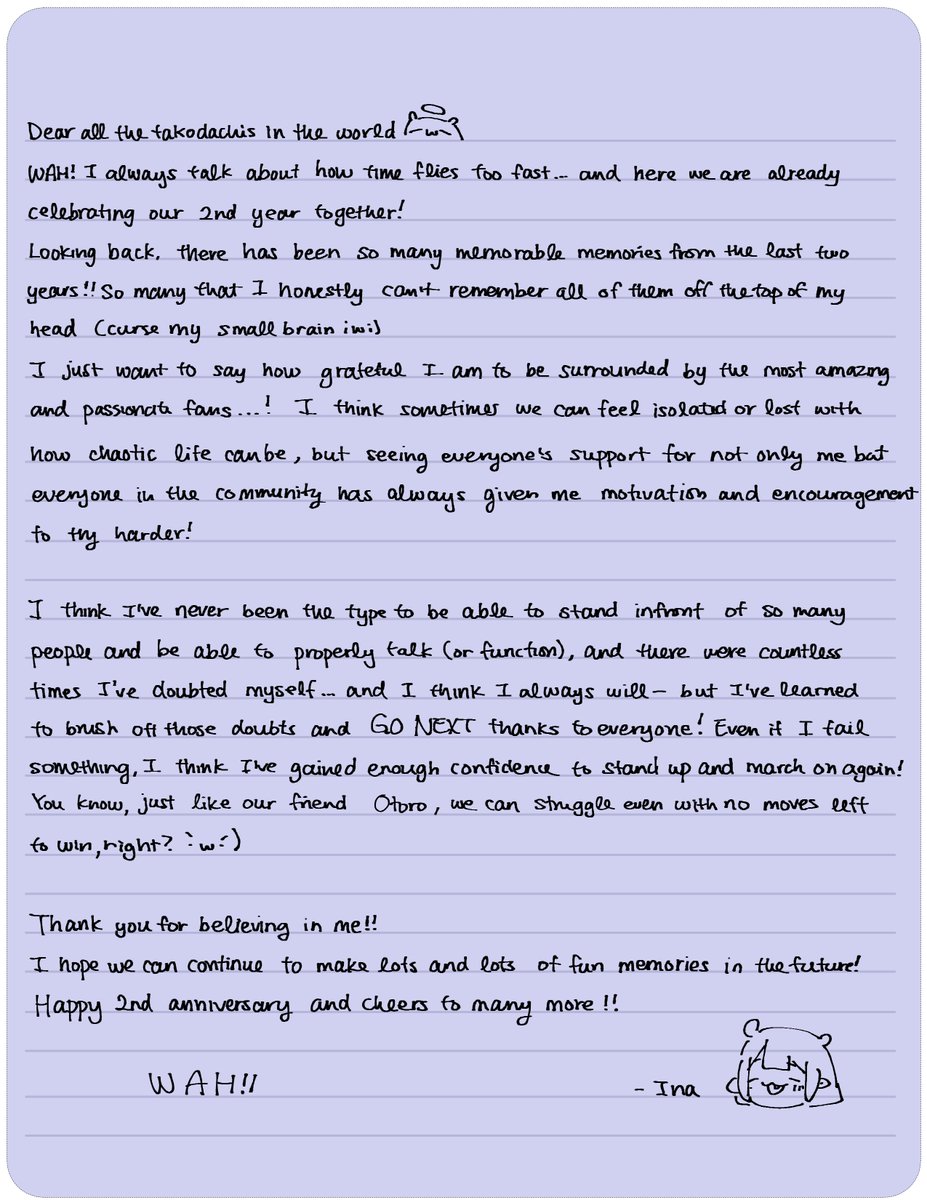 Dear all the takodachis in the world
WAH! I always talk about how time flies too fast... and here we are already
celebrating our 2nd year together!
Looking back, there has been so many memorable memories from the last two
years!! So many that I honestly can't remember all of them off the top of my
head (curse my small brain ;w;)
I just want to say how grateful I am to be surrounded by the most amazing
and passionate fans...! I think sometimes we can feel isolated or lost with
how chaotic life can be, but seeing everyone's support for not only me but
everyone in the community has always given me motivation and encouragement
to try harder!
I think I've never been the type to be able to stand infront of so many
people and be able to properly talk (or function), and there were countless
times I've doubted myself... and I think I always will - but I've learned
to brush off those doubts and GO NEXT thanks to everyone! Even if I fail
something, I think I've gained enough confidence to stand up and march on again!
You know, just like our friend Otoro, we can struggle even with no moves left
to win, right? `:w:´)
Thank you for believing in me!!
I hope we can continue to make lots and lots of fun memories in the future!
Happy 2nd anniversary and cheers to many more!!
WAH!!
- Ina